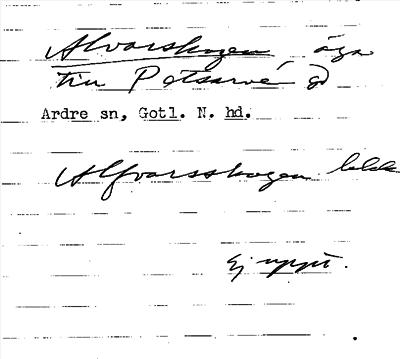 Alvarskogen äga
till Petsarve gd
Ardre sn, Gotl. N. hd.
Alfvarsskogen
Ej uppt.